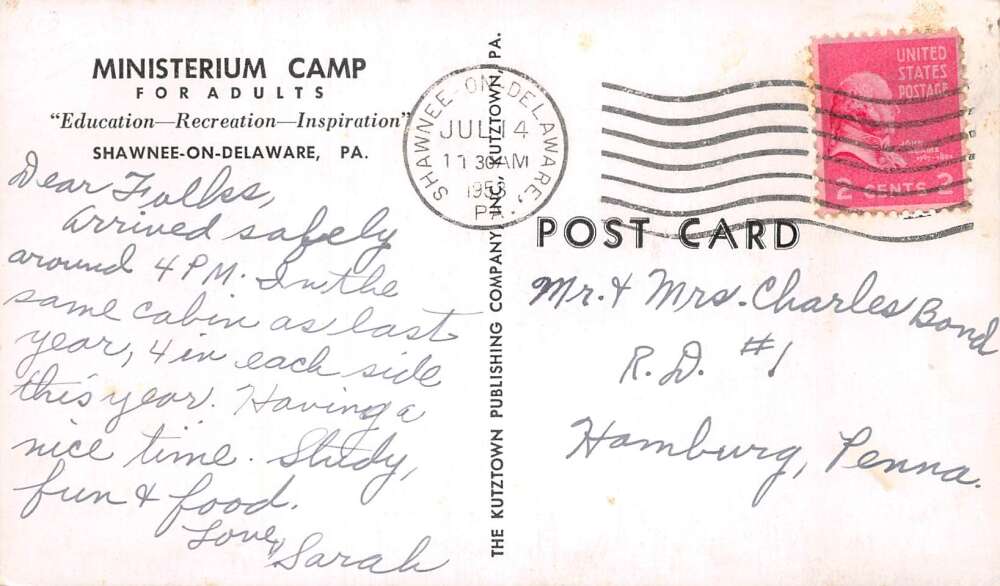 MINISTERIUM CAMP
FOR ADULTS
"Education—Recreation—Inspiration"
SHAWNEE-ON-DELAWARE, PA.
Dear Folkss,
arrived safely
around 4 PM. In the
same cabin as last
year, 4 in each side
this year. Having a
nice time. Study,
fun & food.
Love,
Sarah
THE KUTZTOWN PUBLISHING COMPANY, INC., KUTZTOWN, PA.
SHAWNEE-ON-DELAWARE,
JUL 14
11 30 AM
1953
PA.
UNITED
STATES
POSTAGE
JOHN
ADAMS
2 CENTS 2
POST CARD
Mr. & Mrs. Charles Bond
R.D. #1
Hamburg, Penna.